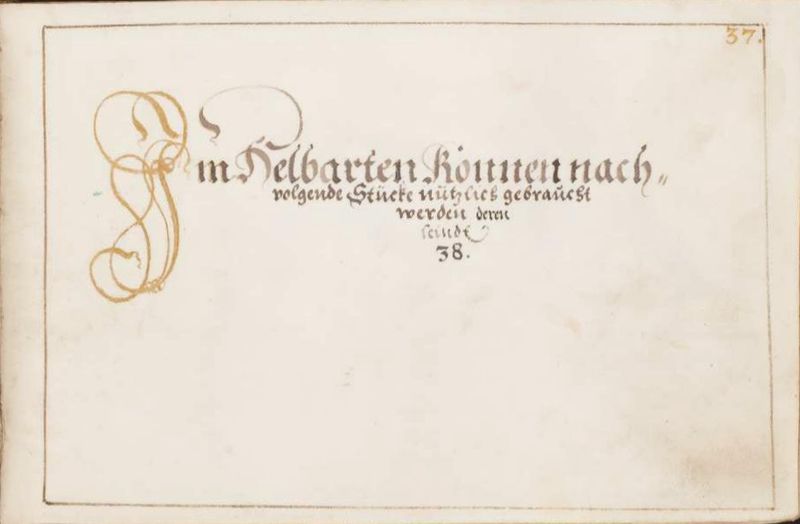 37.
Im Helbarten Können nach„
volgende Stücke nützlich gebraucht
werden deren
seindt
38.